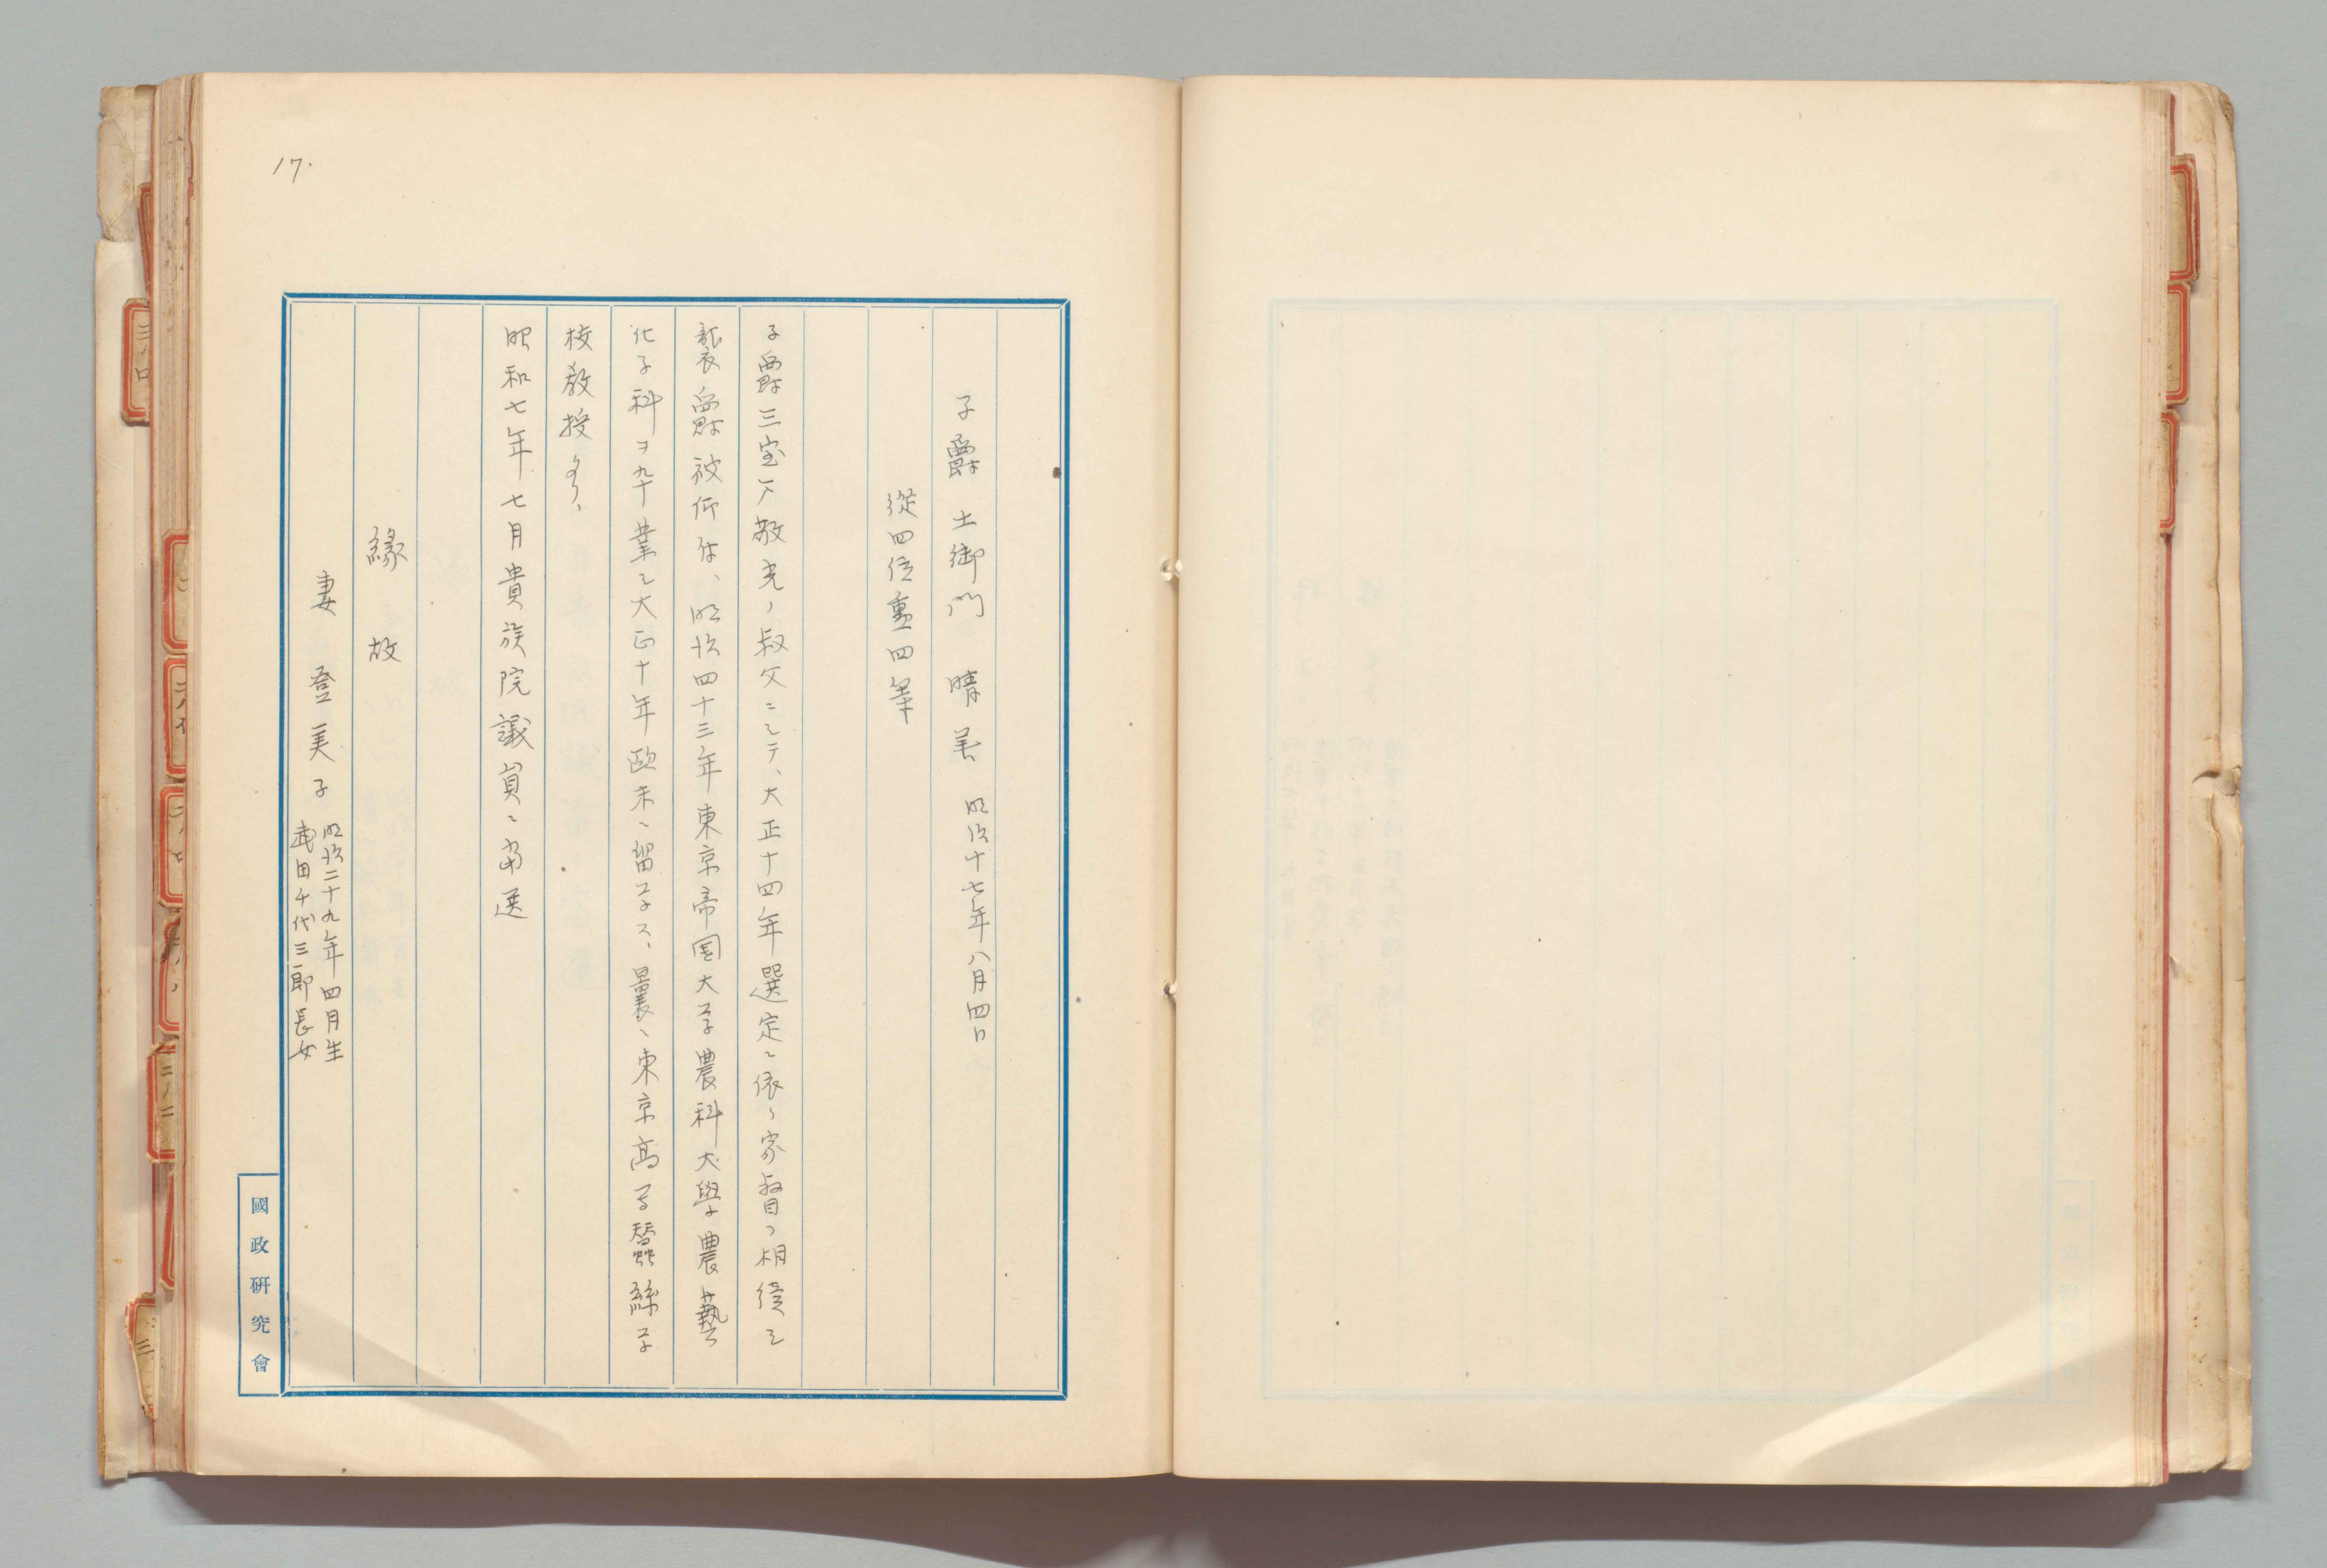 17.
子爵 土御門 晴善 明治十七年八月四日
從四位勲四等
子爵三室戸敬光ノ叔父ニシテ、大正十四年選定ニ依リ家督ヲ相續シ
襲爵被仰付、明治四十三年東京帝国大学農科大學農藝
化学科ヲ卆業シ大正十年欧米ニ留学ス、曩ニ東京高等蠶絲学
校教授タリ、
昭和七年七月貴族院議員ニ當選
緣故
妻 登美子 明治二十九年四月生
武田千代三郎長女
國政研究會